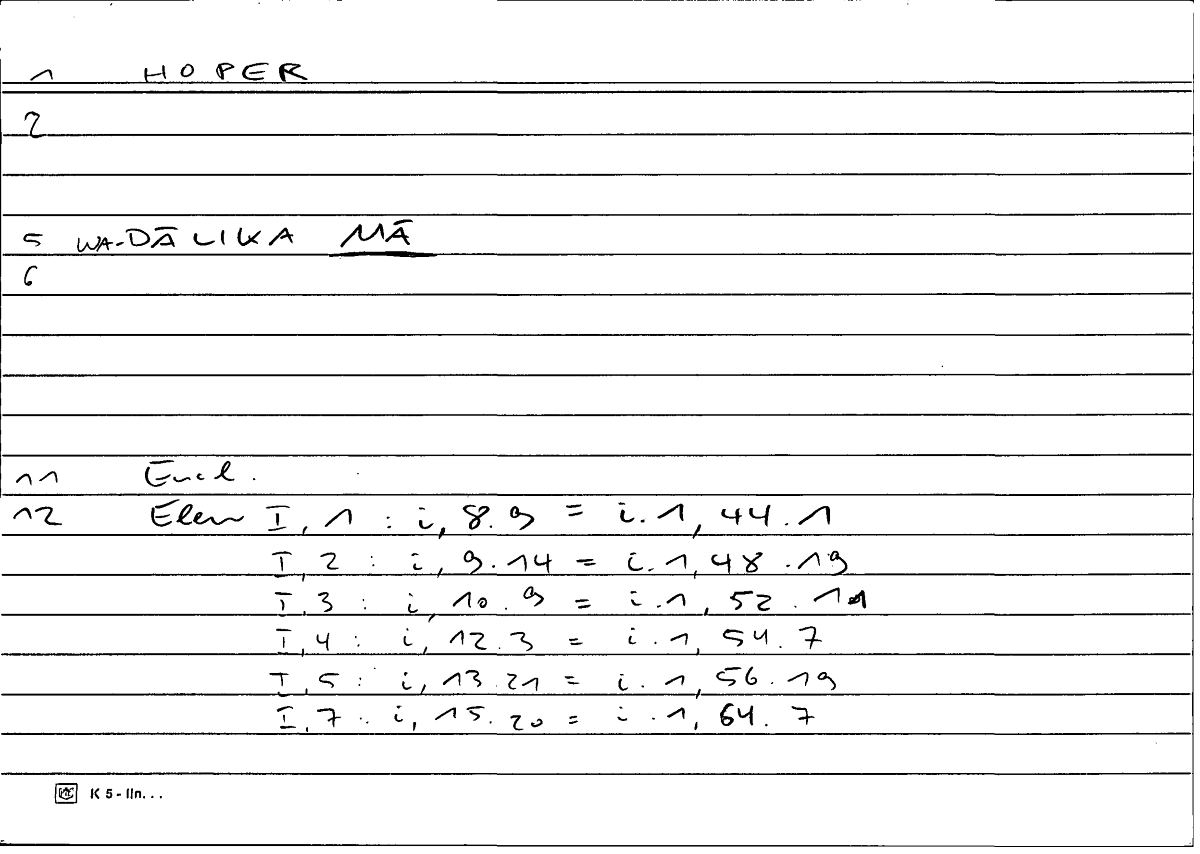 1 HOPER
2
5 WA-DĀLIKA MĀ
6
11 Eucl.
12 Elem I, 1 : i, 8.9 = i.1, 44.1
I, 2 : i, 9.14 = i.1, 48.19
I, 3 : i, 10.9 = i.1, 52.11
I, 4 : i, 12.3 = i.1, 54.7
I, 5 : i, 13.21 = i.1, 56.19
I, 7 : i, 15.20 = i.1, 64.7
K 5 - lin. . .